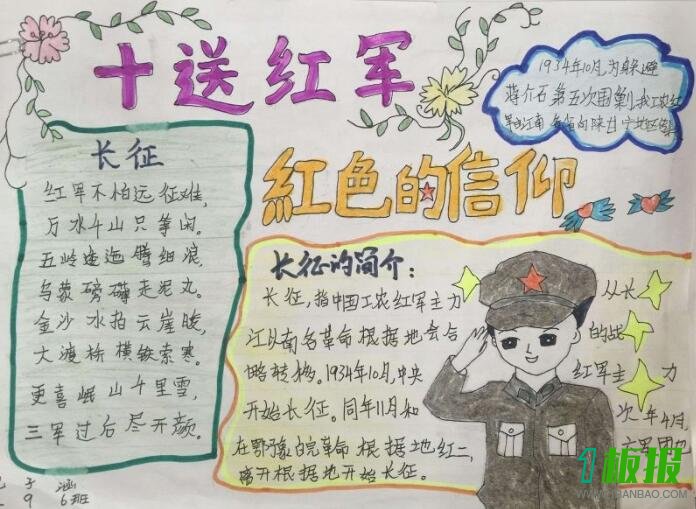 十送红军
1934年10月,为躲避
蒋介石第五次围剿,我工农红
军由江南
向陕甘宁地区
红色的信仰
长征
红军不怕远征难,
万水千山只等闲。
五岭逶迤腾细浪,
乌蒙磅礴走泥丸。
金沙水拍云崖暖,
大渡桥横铁索寒。
更喜岷山千里雪,
三军过后尽开颜。
长征的简介:
长征,指中国工农红军主力 从长
江以南各革命根据地会合 的战
略转移。1934年10月,中央 红军主力
开始长征。同年11月和 次年4月,
在鄂豫皖革命根据地红二, 六军团也
离开根据地开始长征。
子涵
9 6班
1板报
WWW.1BANBAO.COM